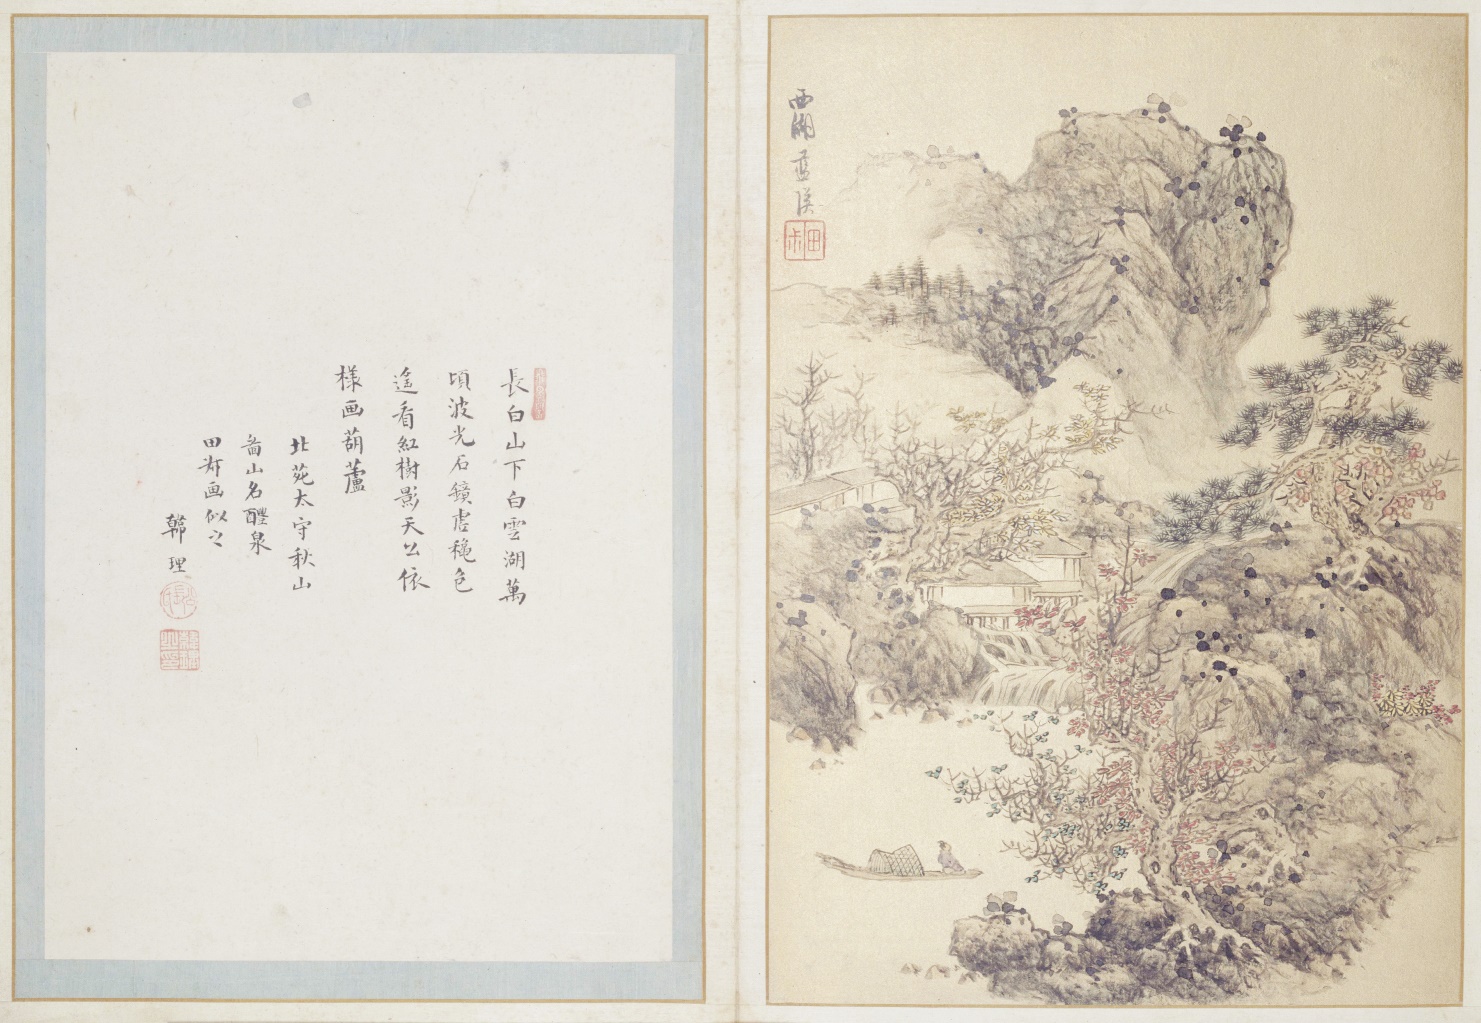 西湖藍瑛
田叔
長白山下白雲湖萬
頃波光石鏡虛穐色
遙看紅樹影天公依
樣画葫蘆
北苑太守秋山
啚山名醴泉
田叔画似之
韓理